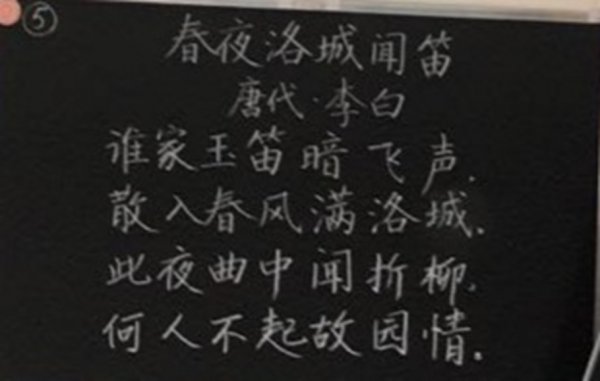 ⑤
春夜洛城闻笛
唐代·李白
谁家玉笛暗飞声.
散入春风满洛城.
此夜曲中闻折柳.
何人不起故园情.